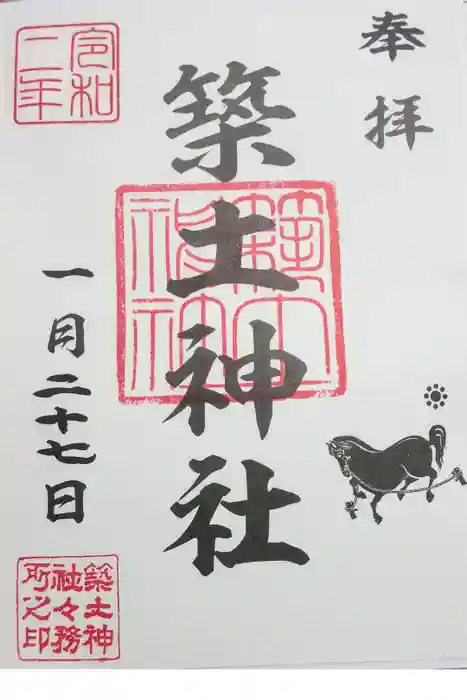 奉拝
築土神社
築土神社
令和二年
一月二十七日
築土神社々務所之印